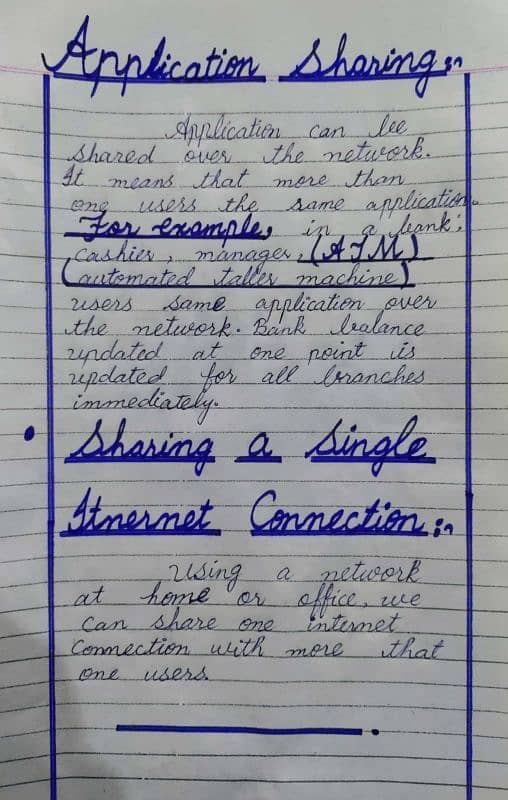 Application Sharing:~
Application can be
shared over the network.
It means that more than
one users the same application.
For example, in a bank;
cashier, manager, (ATM)
(automated taller machine)
users same application over
the network. Bank balance
updated at one point is
updated for all branches
immediately.
• Sharing a Single
Itnernet Connection:~
Using a network
at home or office, we
can share one internet
Connection with more that
one users.